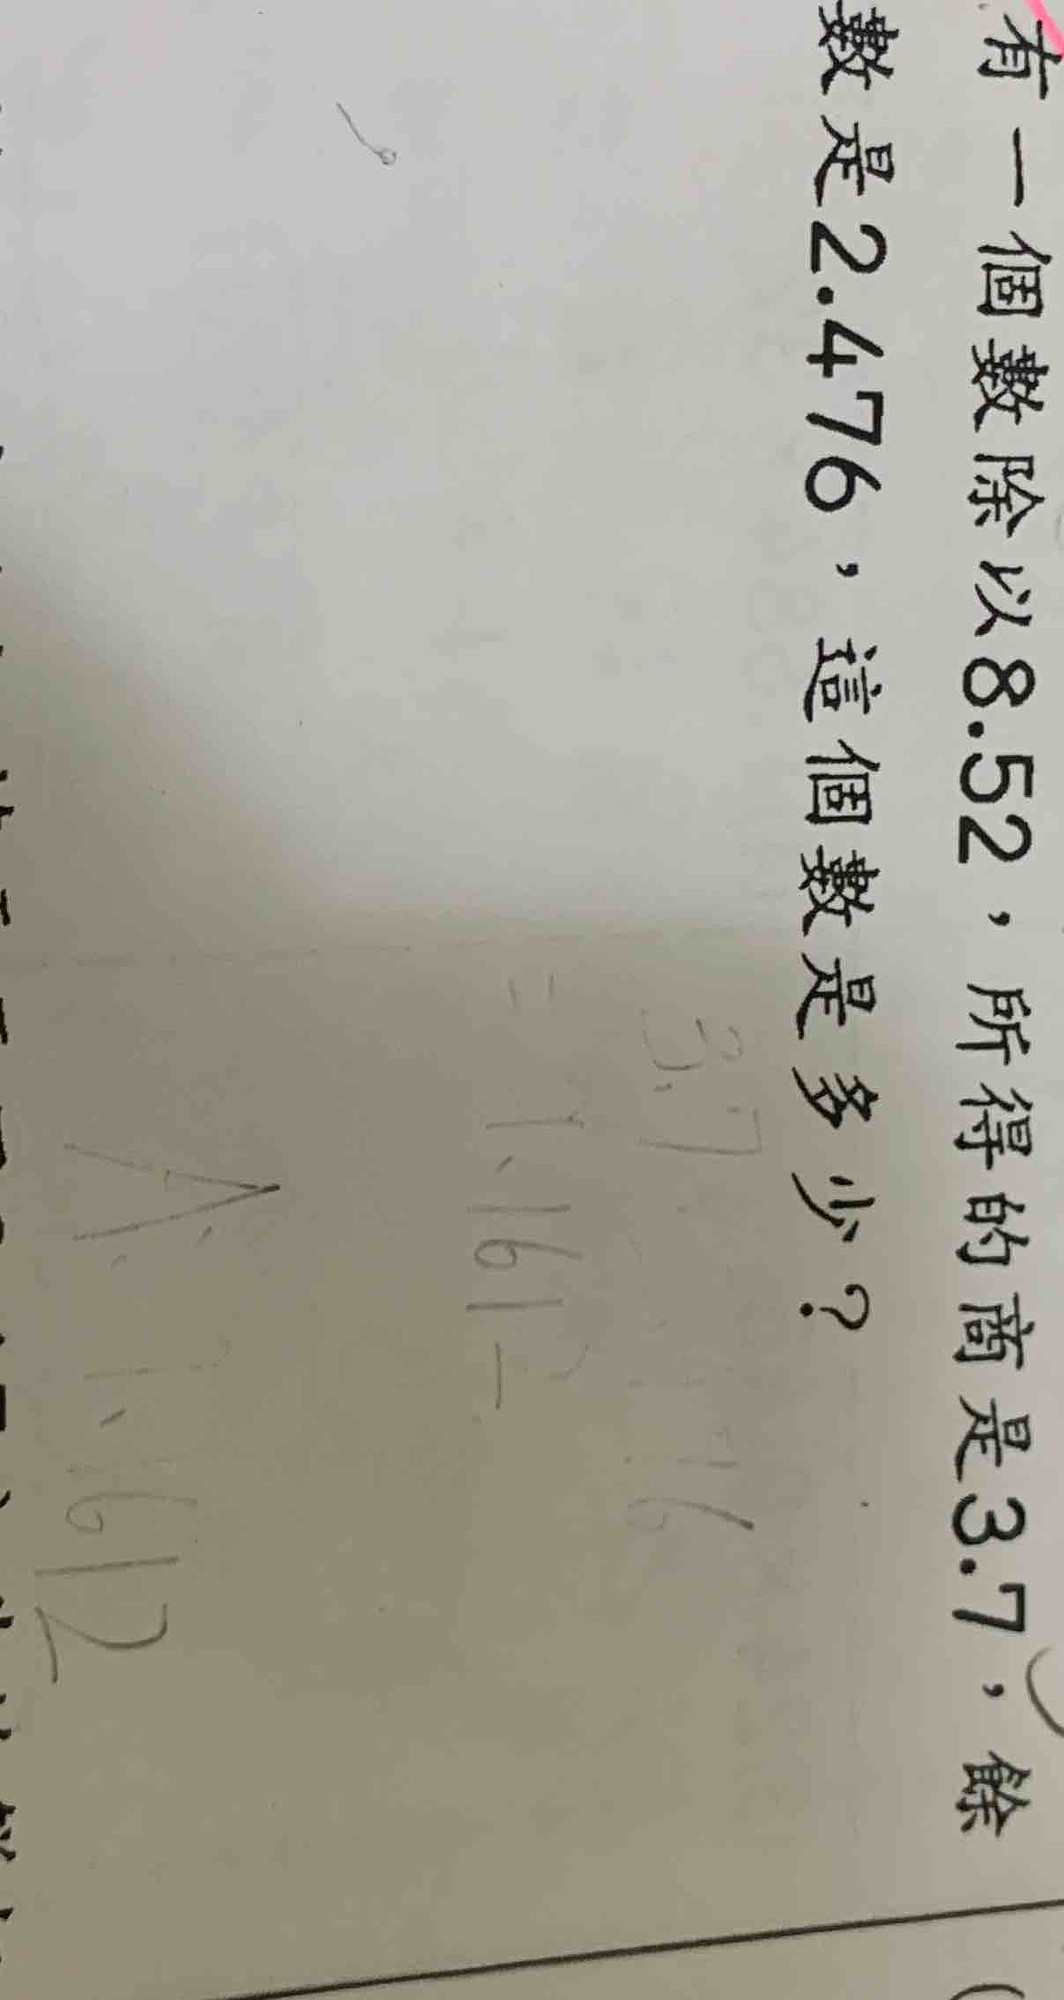 有一個數除以8.52，所得的商是3.7，餘
數是2.476，這個數是多少？
3.7
=1.1612
A: 1.1612